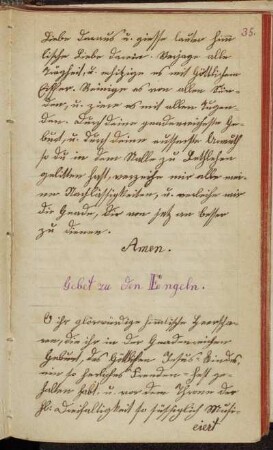 35.
Liebe daraus u. giesse lauter himm
lische Liebe darein. Verjage alle
Trägheit, u. erhitzige es mit Göttlichem
Eyffer. Reinige es von allen Sün-
den, u. ziere es mit allen Tugen-
den. Durch deine gnadenreicheste Ge-
burt u. durch deine äusserste Armuth
so du in dem Stalle zu Bethlehem
gelitten hast, verzeihe mir alle mei-
ne Nachlässigkeiten, u. verleihe mir
die Gnade, Dir von jetz an besser
zu dienen.
Amen.
Gebet zu den Engeln.
O ihr glorwürdige himmlische Heerscha-
ren, die ihr in der Gnadenreichen
Geburt, des Göttlichen Jesus Kindes
ein so herliches Freuden-Fest ge-
halten habt. u. vor dem Throne der
hl: Dreifaltigkeit so süssiglich Musi-
ciert